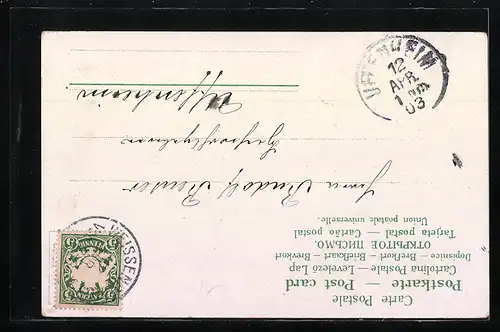 Carte Postale
Postkarte — Post card
Cartolina Postale — Levelező Lap
Dopisnice — Brefkort — Briefkaart — Brevkort
ОТКРЫТОЕ ПИСЬМО.
Tarjeta postal — Cartão postal
Union postale universelle.
Herrn Rudolf
Uffenheim
UFFENHEIM
12
APR.
03
5 5
PFENNIG
BAYERN